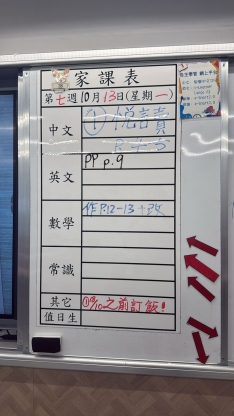 家課表
第七週10月13日(星期一)
中文
① 悅讀
英文
PP p.9
數學
作P.12-13 + 改
常識
其它
之前訂飯!
值日生